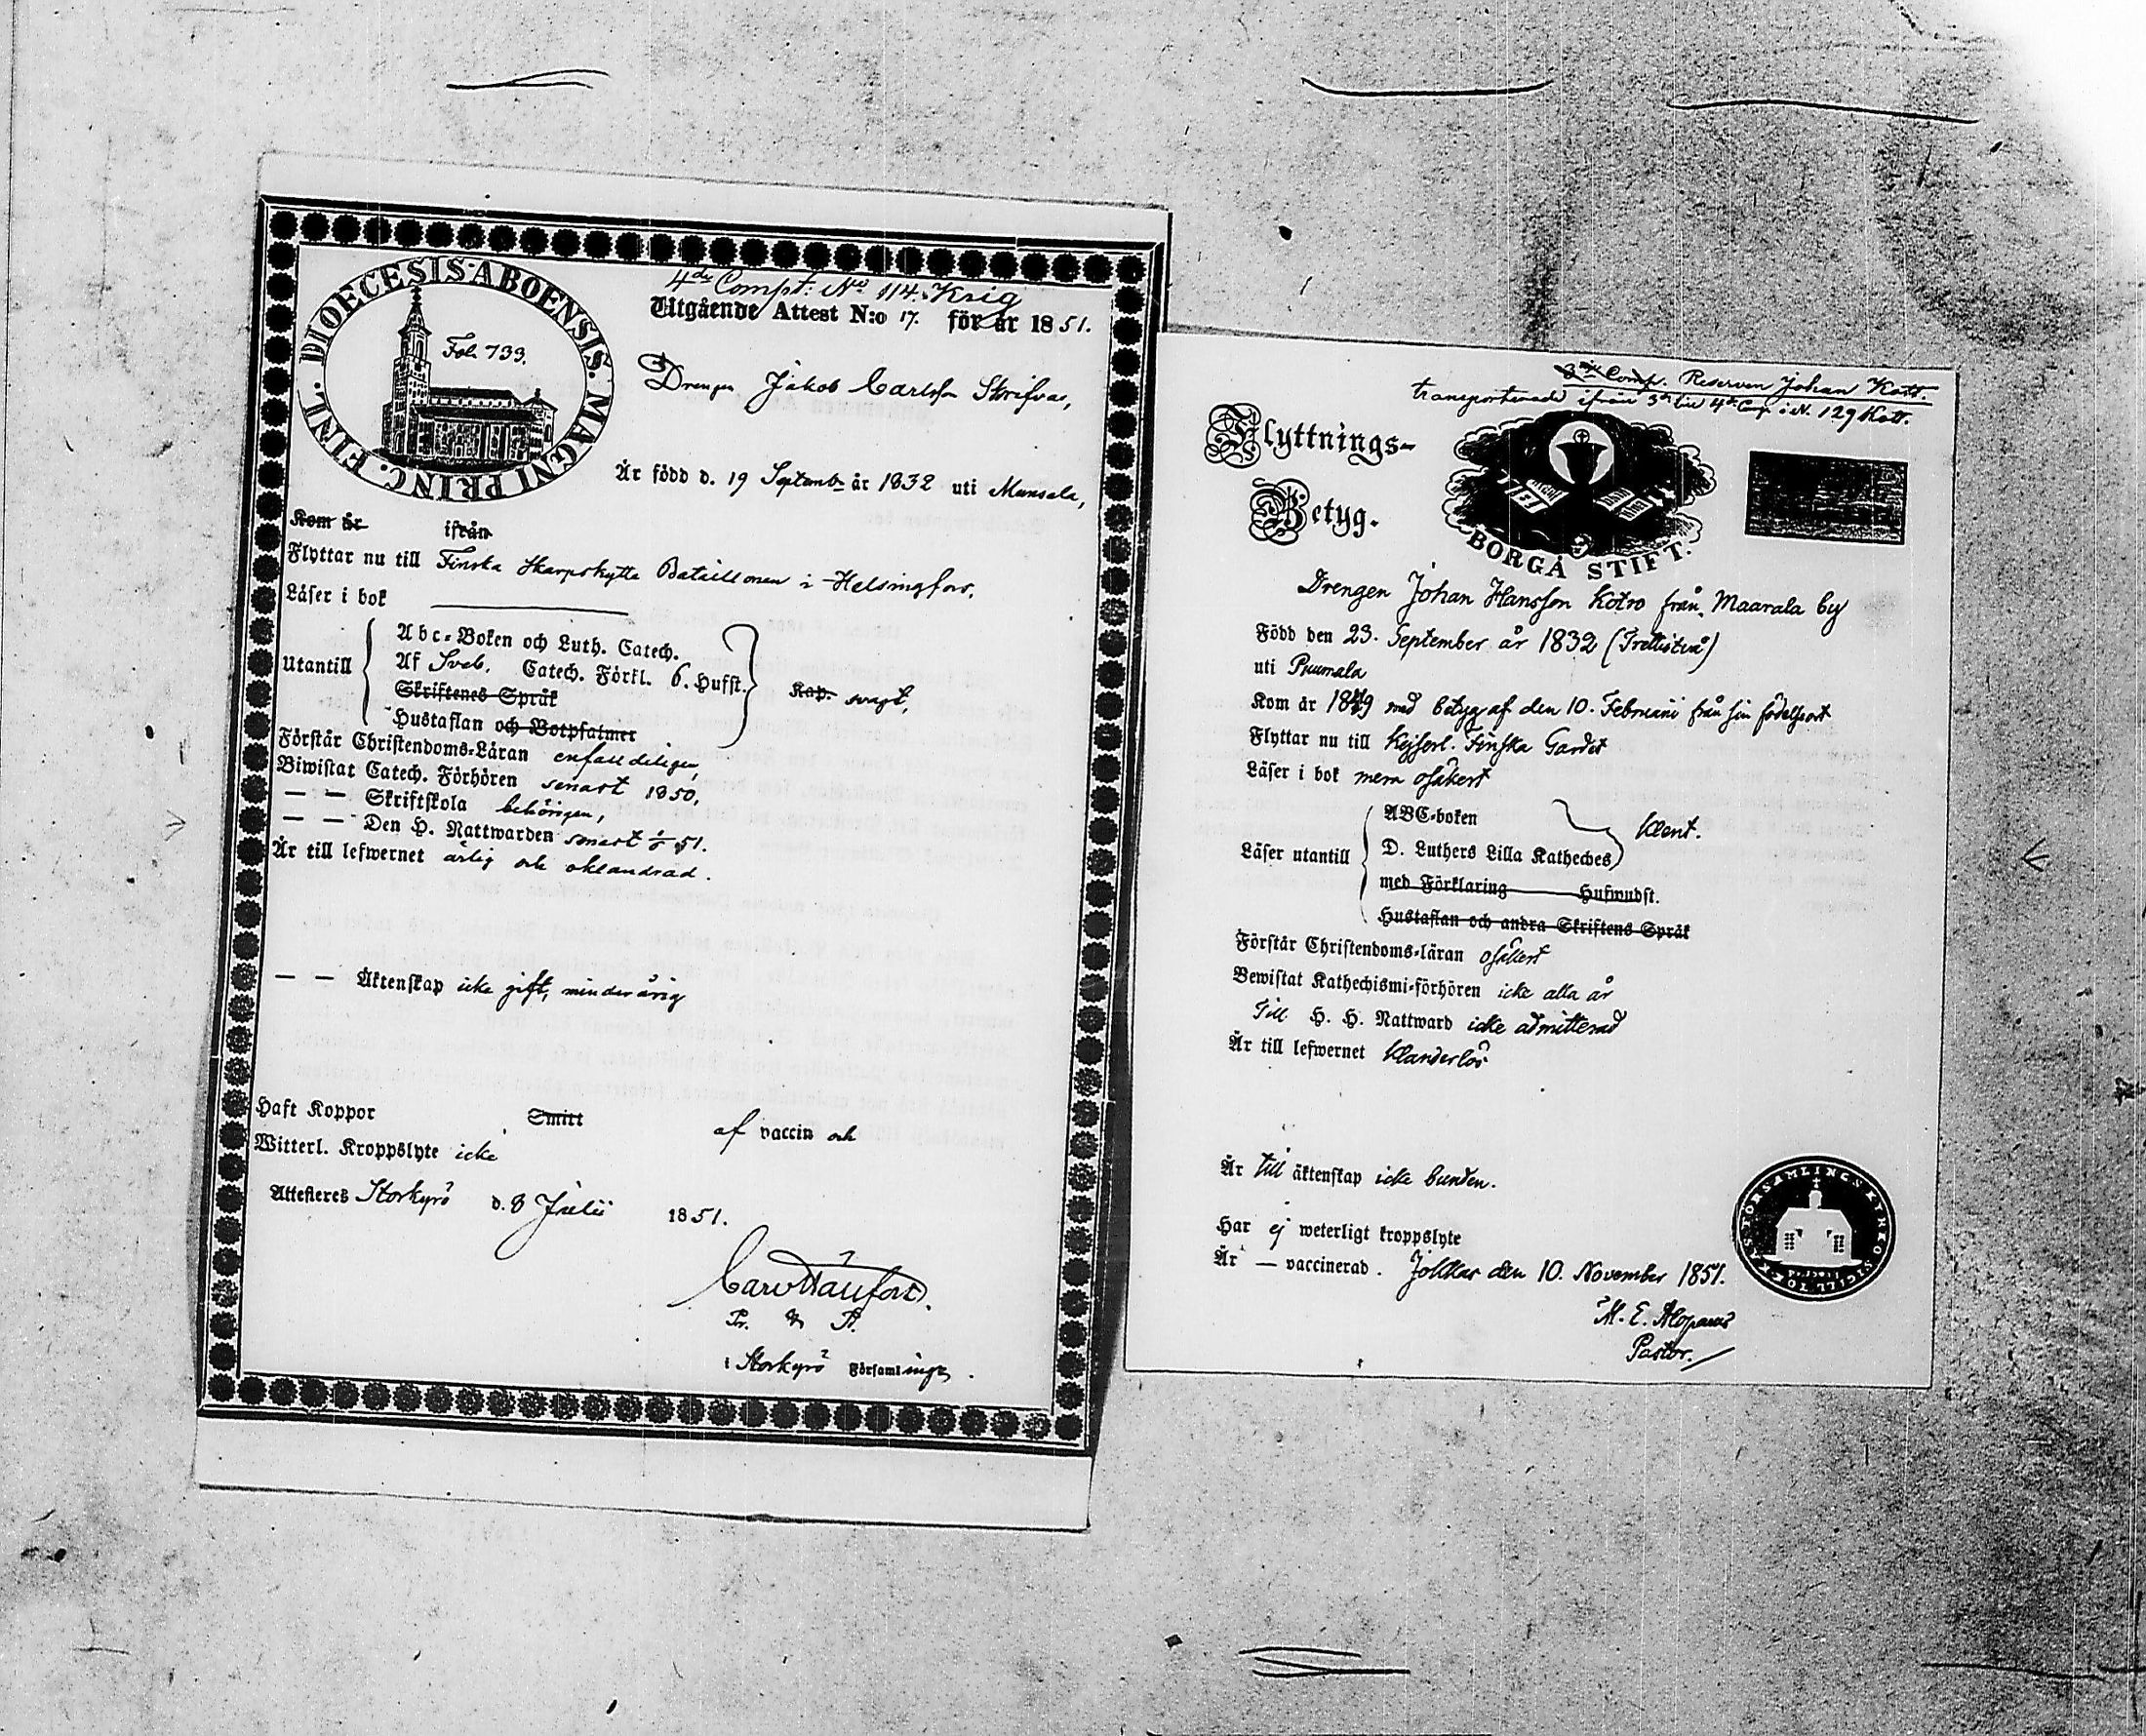 4de Compt: No 114. Krig
Utgående Attest N:o 17. för år 1851.
DIOECESIS ABOENSIS. MAGNI PRINC. FINL.
Fol. 733.
Drengen Jakob Carlsson Skrifvas,
Är född d. 19 Septemb. år 1832 uti Munsala,
Kom år ifrån
Flyttar nu till Finska Skarpskytte Bataillonen i Helsingfors.
Läser i bok
Utantill
Abc-Boken och Luth. Catech.
Af Sveb. Catech. Förkl. 6. Hufst. Kap. svagt,
Skriftenes Språk
Hustaflan och Botpsalmer
Förstår Christendoms-Läran enfalldeligen,
Biwistat Catech. Förhören senast 1850,
— — Skriftskola behörigen,
— — Den H. Nattwarden senast 51.
Är till lefwernet ärlig och oklandrad.
— — Äktenskap icke gift, minderårig
Haft Koppor Smitt af vaccin och
Witterl. Kroppslyte icke
Attesteres Storkyrö d. 8 Julii 1851.
i Storkyrö Församlings
3dje Comp. Reserven Johan Kott.
transporterade ifrån 3de till 4de Comp i N. 129 Kott.
Flyttnings-
Betyg.
BORGÅ STIFT.
Drengen Johan Hansson Kotro från Maarala by
Född den 23. September år 1832 (Trettiotvå)
uti Puumala
Kom år 1849 med betyg af den 10. Februarii från sin födelseort
Flyttar nu till Kejserl. Finska Gardet
Läser i bok mera osäkert
Läser utantill
ABC-boken
D. Luthers Lilla Katheches klent.
med Förklaring Hufwudst.
Hustaflan och andra Skriftens Språk
Förstår Christendoms-läran osäkert
Bewistat Kathechismi-förhören icke alla år
Till H. H. Nattward icke admitterad
Är till lefwernet klanderlös
Är till äktenskap icke bunden.
Har ej weterligt kroppslyte
Är — vaccinerad. Jokkas den 10. November 1851.
M. E. Alopaeus
Pastor.